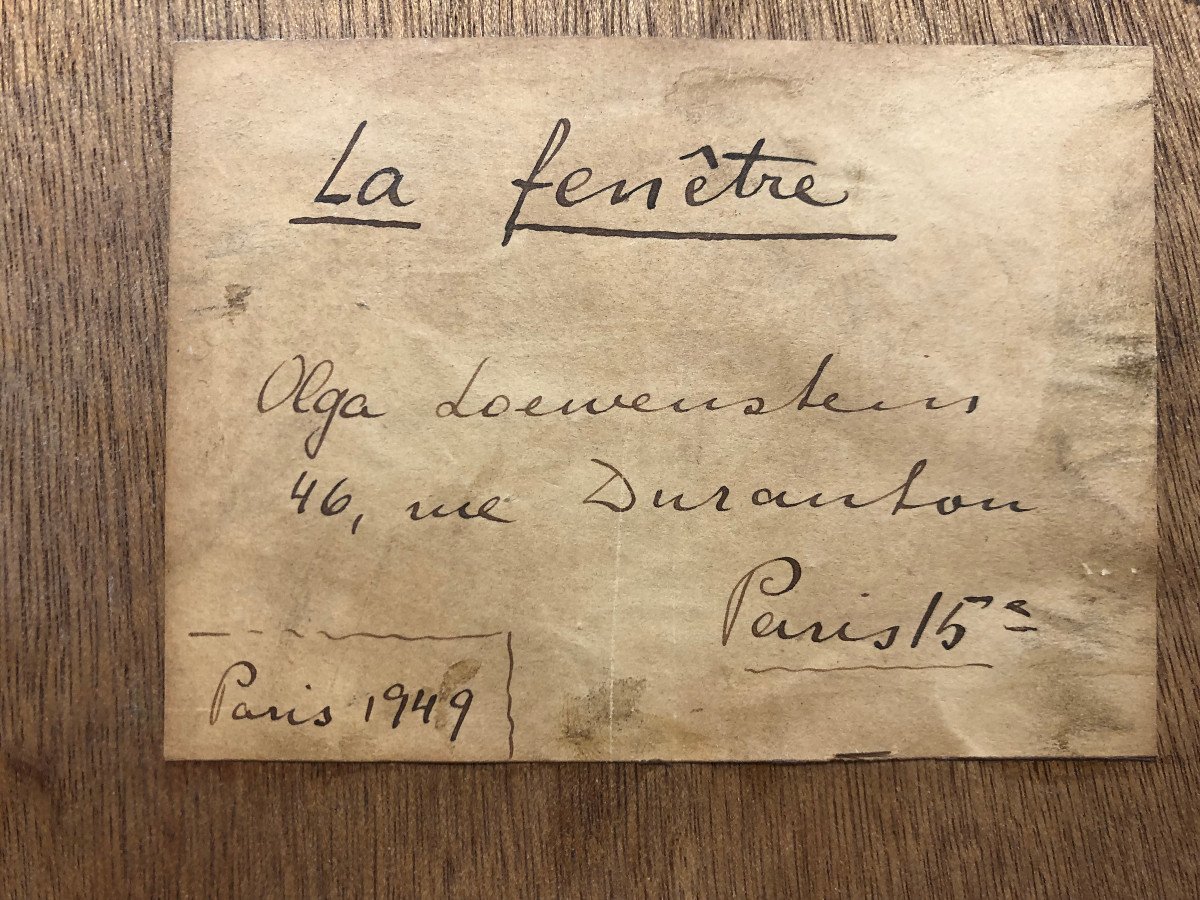 La fenêtre
Olga Loewenstein
46, rue Duranton
Paris 15e
Paris 1949